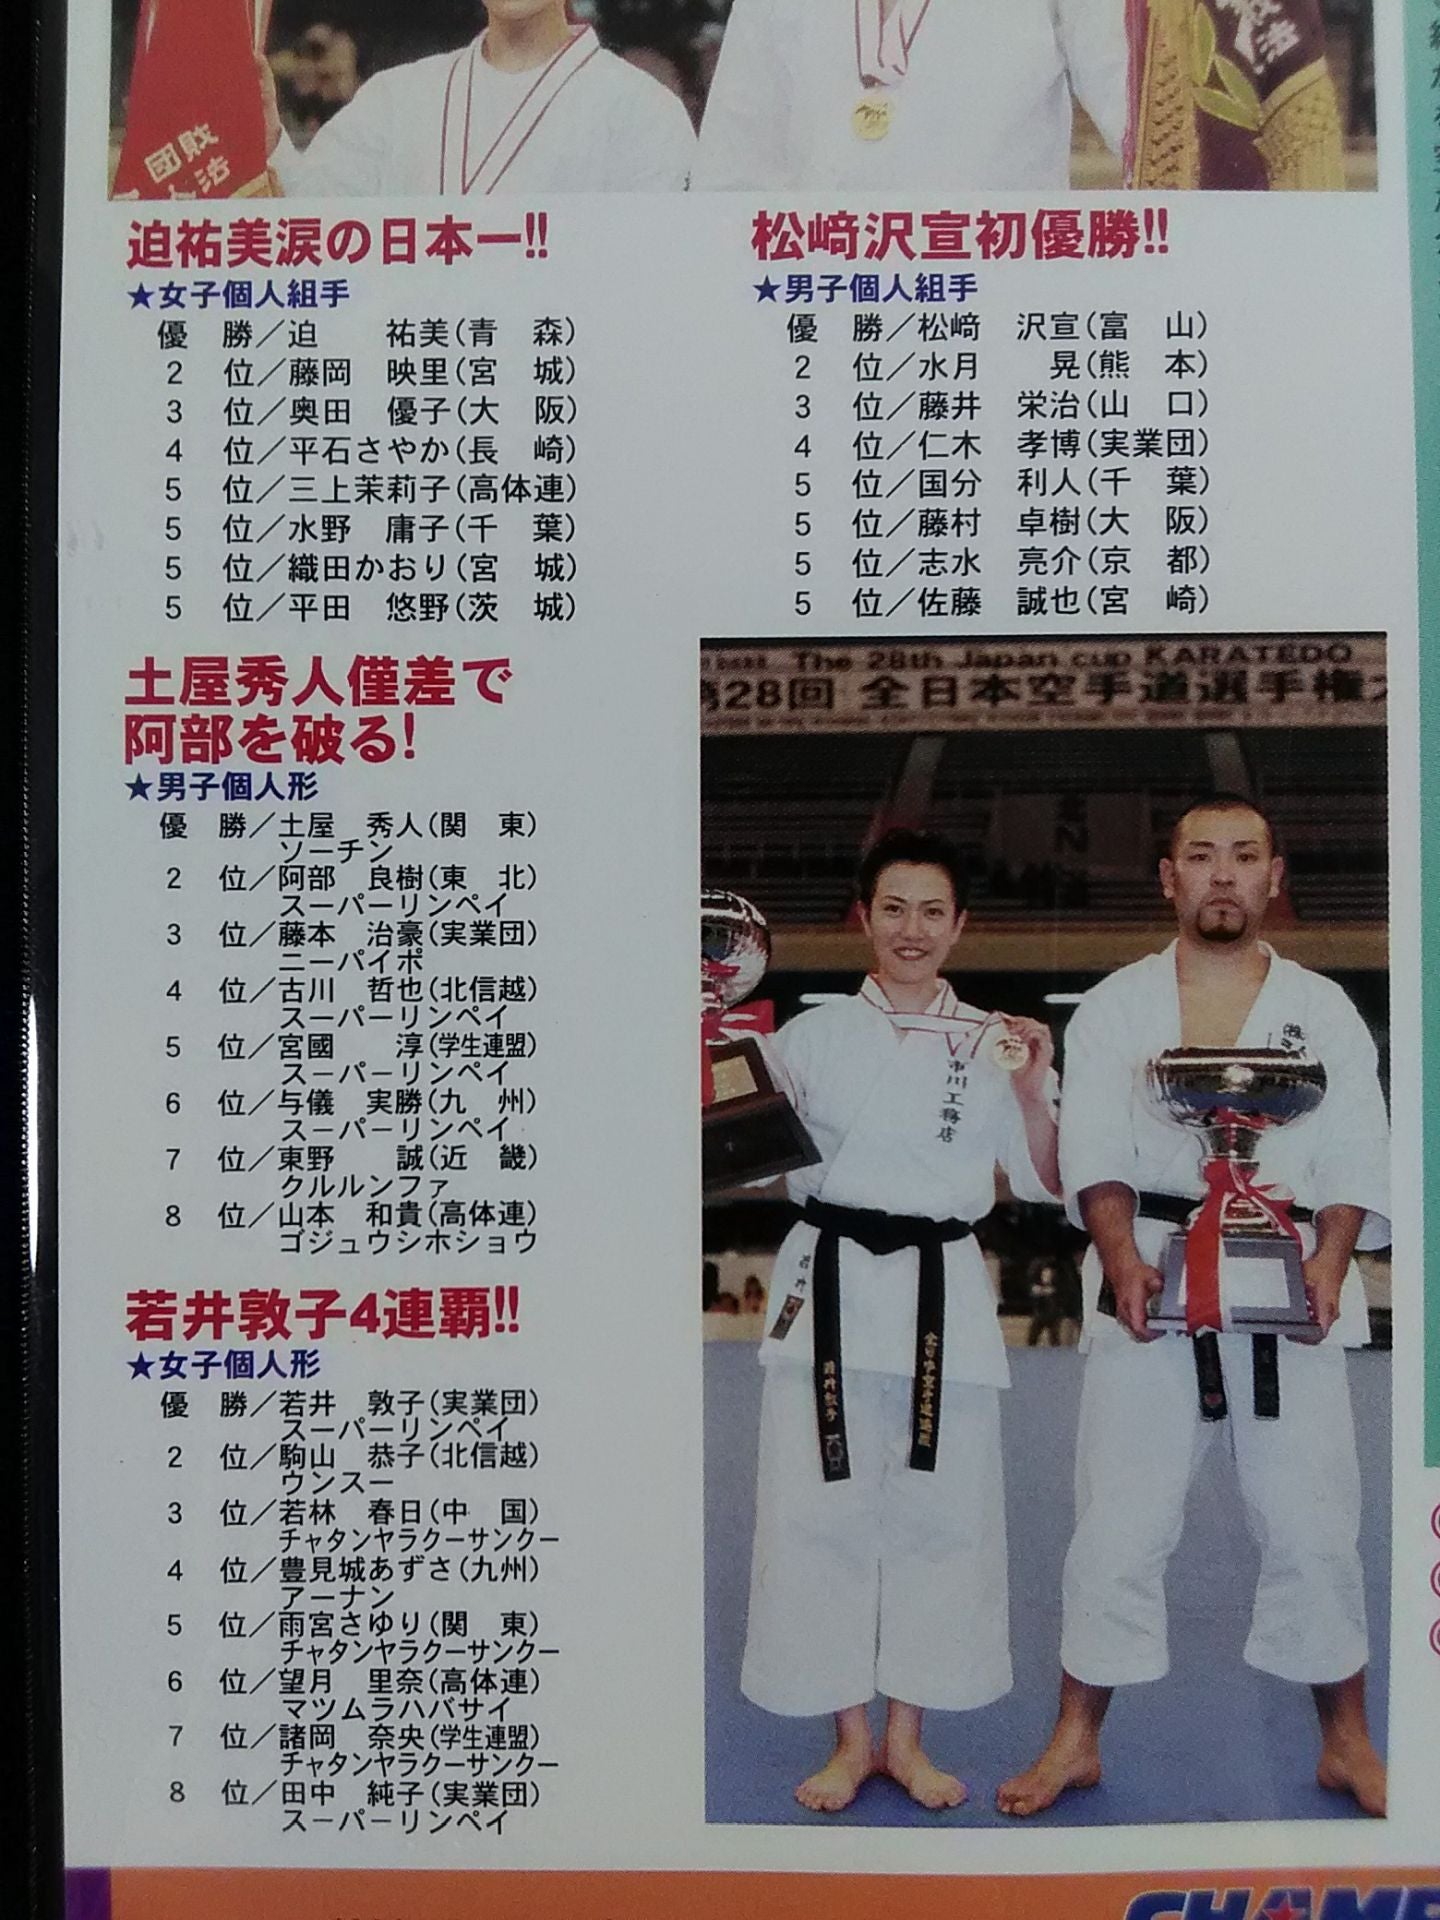 団
敢
法
法
迫祐美涙の日本一!!
★女子個人組手
優　勝／迫　　祐美(青　森)
2　位／藤岡　映里(宮　城)
3　位／奥田　優子(大　阪)
4　位／平石さやか(長　崎)
5　位／三上茉莉子(高体連)
5　位／水野　庸子(千　葉)
5　位／織田かおり(宮　城)
5　位／平田　悠野(茨　城)
松﨑沢宣初優勝!!
★男子個人組手
優　勝／松﨑　沢宣(富　山)
2　位／水月　　晃(熊　本)
3　位／藤井　栄治(山　口)
4　位／仁木　孝博(実業団)
5　位／国分　利人(千　葉)
5　位／藤村　卓樹(大　阪)
5　位／志水　亮介(京　都)
5　位／佐藤　誠也(宮　崎)
土屋秀人僅差で
阿部を破る!
★男子個人形
優　勝／土屋　秀人(関　東)
ソーチン
2　位／阿部　良樹(東　北)
スーパーリンペイ
3　位／藤本　治豪(実業団)
ニーパイポ
4　位／古川　哲也(北信越)
スーパーリンペイ
5　位／宮國　　淳(学生連盟)
スーパーリンペイ
6　位／与儀　実勝(九　州)
スーパーリンペイ
7　位／東野　　誠(近　畿)
クルルンファ
8　位／山本　和貴(高体連)
ゴジュウシホショウ
若井敦子4連覇!!
★女子個人形
優　勝／若井　敦子(実業団)
スーパーリンペイ
2　位／駒山　恭子(北信越)
ウンスー
3　位／若林　春日(中　国)
チャタンヤラクーサンクー
4　位／豊見城あずさ(九州)
アーナン
5　位／雨宮さゆり(関　東)
チャタンヤラクーサンクー
6　位／望月　里奈(高体連)
マツムラハバサイ
7　位／諸岡　奈央(学生連盟)
チャタンヤラクーサンクー
8　位／田中　純子(実業団)
スーパーリンペイ
The 28th Japan cup KARATEDO
第28回 全日本空手道選手権大
市川工務店
若井
若井敦子
CHAMP